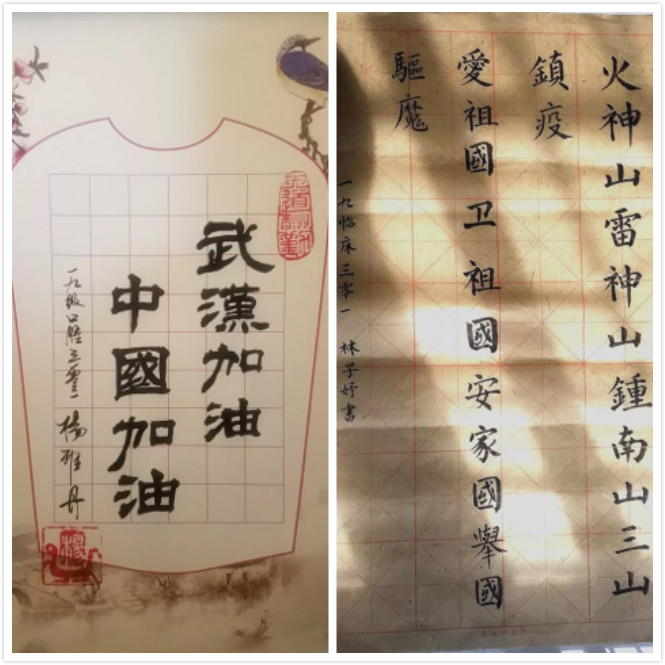 武漢加油
中國加油
一九级口腔三零一 楊雅丹
楊
火神山雷神山鍾南山三山
鎮疫
愛祖國卫祖國安家國舉國
驅魔
一九临床三零一 林子妤書